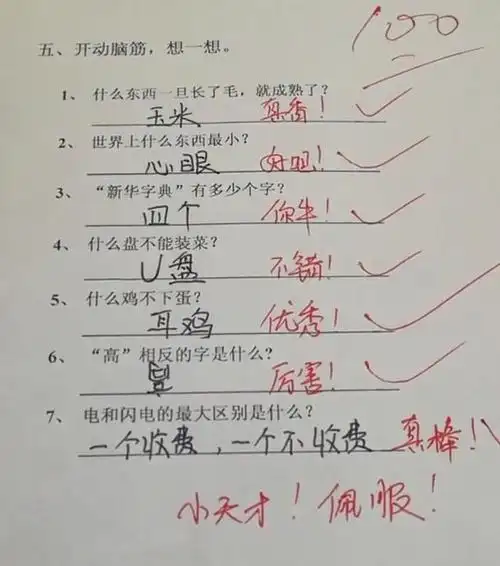 100
五、开动脑筋，想一想。
1、什么东西一旦长了毛，就成熟了？
玉米 真香！
2、世界上什么东西最小？
心眼
3、“新华字典”有多少个字？
四个 你牛！
4、什么盘不能装菜？
U盘 不错！
5、什么鸡不下蛋？
耳鸡 优秀！
6、“高”相反的字是什么？
厉害！
7、电和闪电的最大区别是什么？
一个收费，一个不收费 真棒！
小天才！佩服！